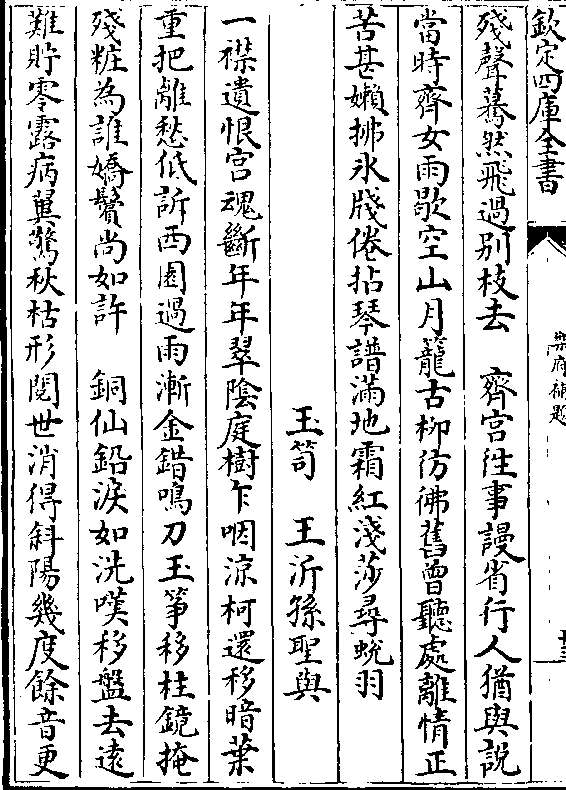 欽定四庫全書
樂府補題
十三
殘聲驀然飛過别枝去　齊宫往事謾省行人猶與説
當時齊女雨歇空山月籠古柳彷彿舊曾聽處離情正
苦甚嬾拂氷牋倦拈琴譜滿地霜紅淺莎尋蛻羽
玉笥　王沂孫聖與
一襟遺恨宫魂斷年年翠陰庭樹乍咽涼柯還移暗葉
重把離愁低訴西園過雨漸金錯鳴刀玉筝移柱鏡掩
殘粧為誰嬌鬢尚如許　銅仙鉛淚如洗嘆移盤去逺
難貯零露病翼驚秋枯形閱世消得斜陽幾度餘音更